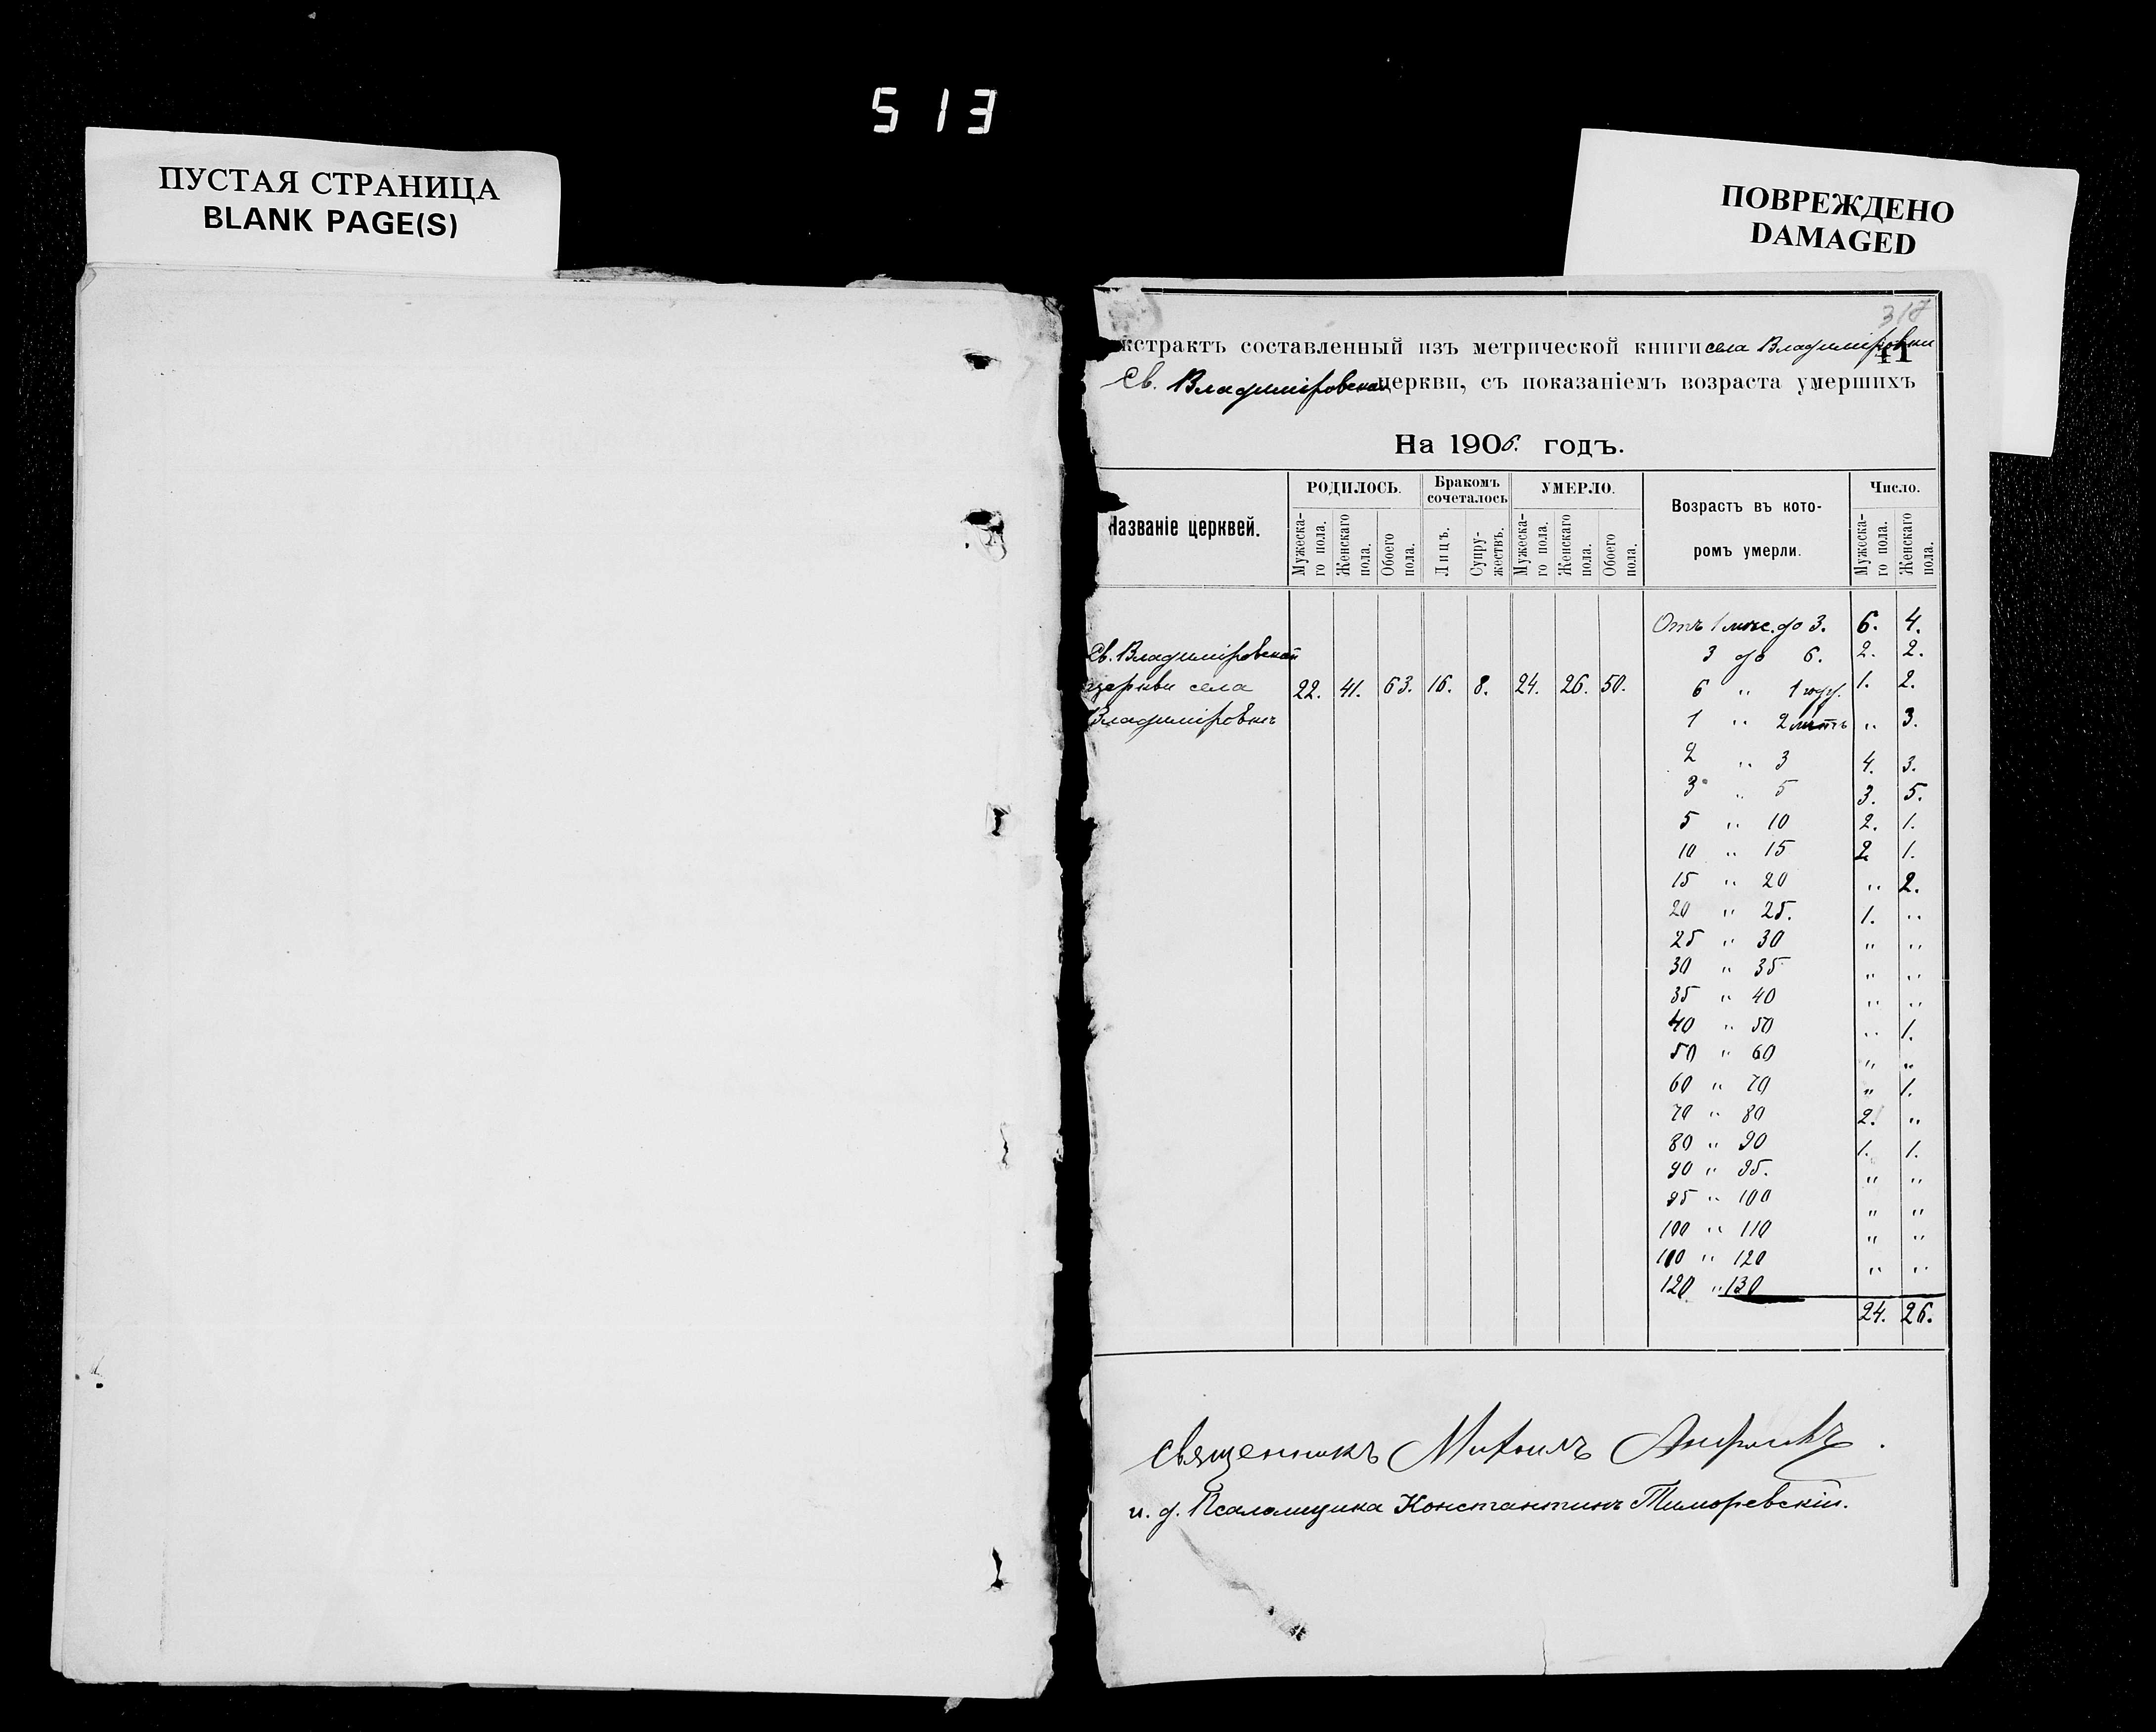 513
ПУСТАЯ СТРАНИЦА
BLANK PAGE(S)
ПОВРЕЖДЕНО
DAMAGED
317
41
кстрактъ составленный изъ метрической книги села Владиміровки
Св. Владиміровской церкви, съ показаніемъ возраста умершихъ
На 1906. годъ.
Названіе церквей.
РОДИЛОСЬ.
Мужеска-
го пола.
Женскаго
пола.
Обоего
пола.
Бракомъ
сочеталось
Лицъ.
Супру-
жествъ.
УМЕРЛО.
Мужеска-
го пола.
Женскаго
пола.
Обоего
пола.
Возрастъ въ кото-
ромъ умерли.
Число.
Мужеска-
го пола.
Женскаго
пола.
Св. Владиміровской
церкви села
Владиміровки
22. 41. 63. 16. 8. 24. 26. 50.
Отъ 1 мѣс. до 3. 6. 4.
3 до 6. 2. 2.
6 " 1 года. 1. 2.
1 " 2 лѣтъ " 3.
2 " 3 4. 3.
3 " 5 3. 5.
5 " 10 2. 1.
10 " 15 2 1.
15 " 20 " 2.
20 " 25. 1. "
25 " 30 " "
30 " 35 " "
35 " 40 " "
40 " 50 " 1.
50 " 60 " "
60 " 70 " 1.
70 " 80 2. "
80 " 90 1. 1.
90 " 95. " "
95 " 100 " "
100 " 110 " "
110 " 120 " "
120 " 130
24. 26.
Священникъ Михаилъ
и. д. Псаломщика Константинъ Тиморевскій.